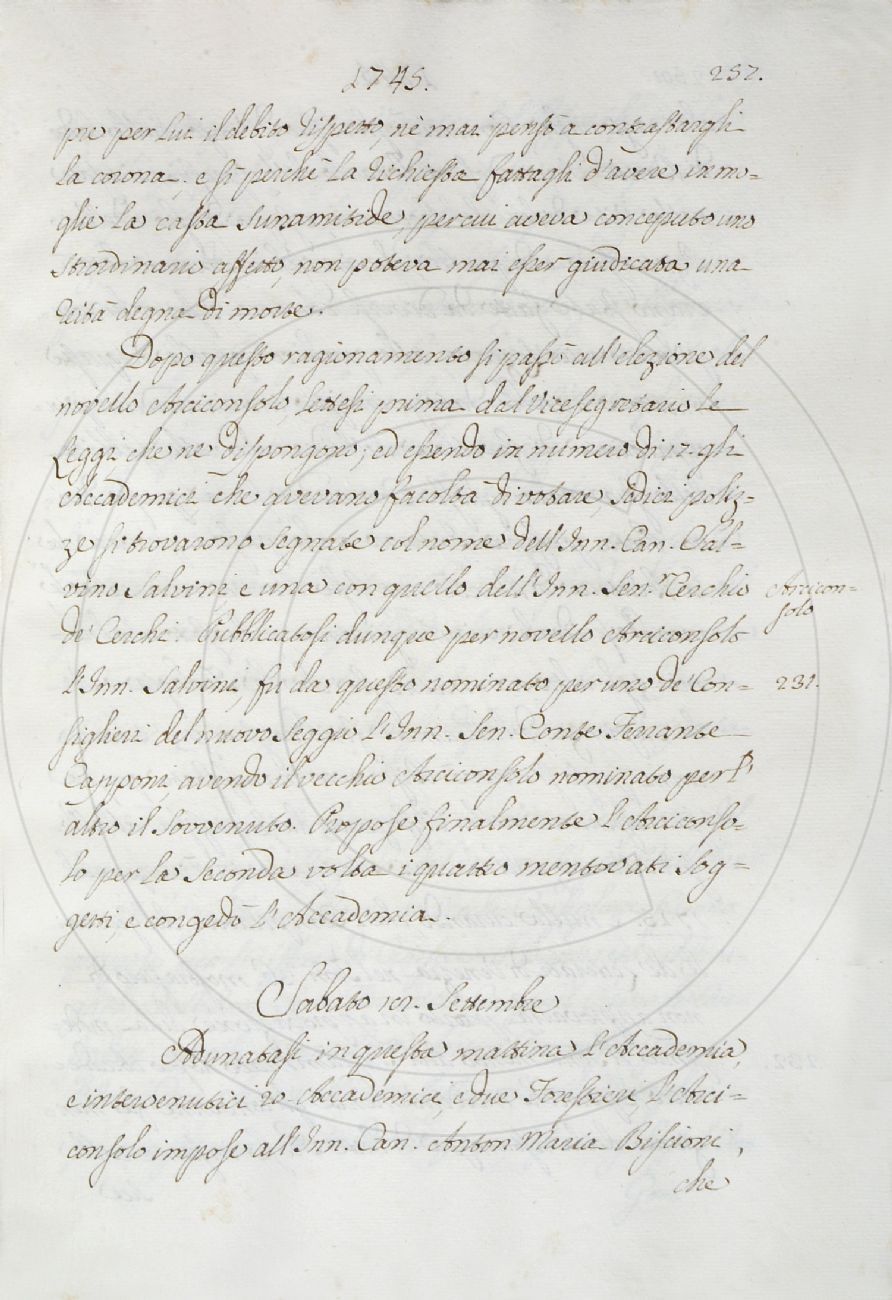 1745. 257.
pre per lui il debito rispetto, nè mai pensò a contrastargli
la corona, e sì perchè la richiesta fattagli d'avere in mo-
glie la casta Sunamitide, per cui aveva conceputo uno
straordinario affetto, non poteva mai esser giudicata una
reità degna di morte.
Dopo questo ragionamento si passò all'elezione del
novello Arciconsolo, lettesi prima dal Vicesegretario le
Leggi, che ne dispongono; ed essendo in numero di 17. gli
Accademici che avevano facoltà di votare, sedici poliz-
ze si trovarono segnate col nome dell'Inn. Can. Sal-
vino Salvini e una con quello dell'Inn. Sen.r Cerchio
de' Cerchi. Pubblicatosi dunque per novello Arciconsolo
l'Inn. Salvini, fu da questo nominato per uno de' Con-
siglieri del nuovo Seggio l'Inn. Sen. Conte Ferrante
Capponi avendo il vecchio Arciconsolo nominato per l'
altro il Sovvenuto. Propose finalmente l'Arciconso-
lo per la seconda volta i quattro mentovati Sog-
getti, e congedò l'Accademia.
Arcicon-
solo
231.
Sabato Settembre
Adunatasi in questa mattina l'Accademia,
e intervenutici 20. Accademici, e due Forestieri, l'Arci-
consolo impose all'Inn. Can. Anton Maria Biscioni,
che